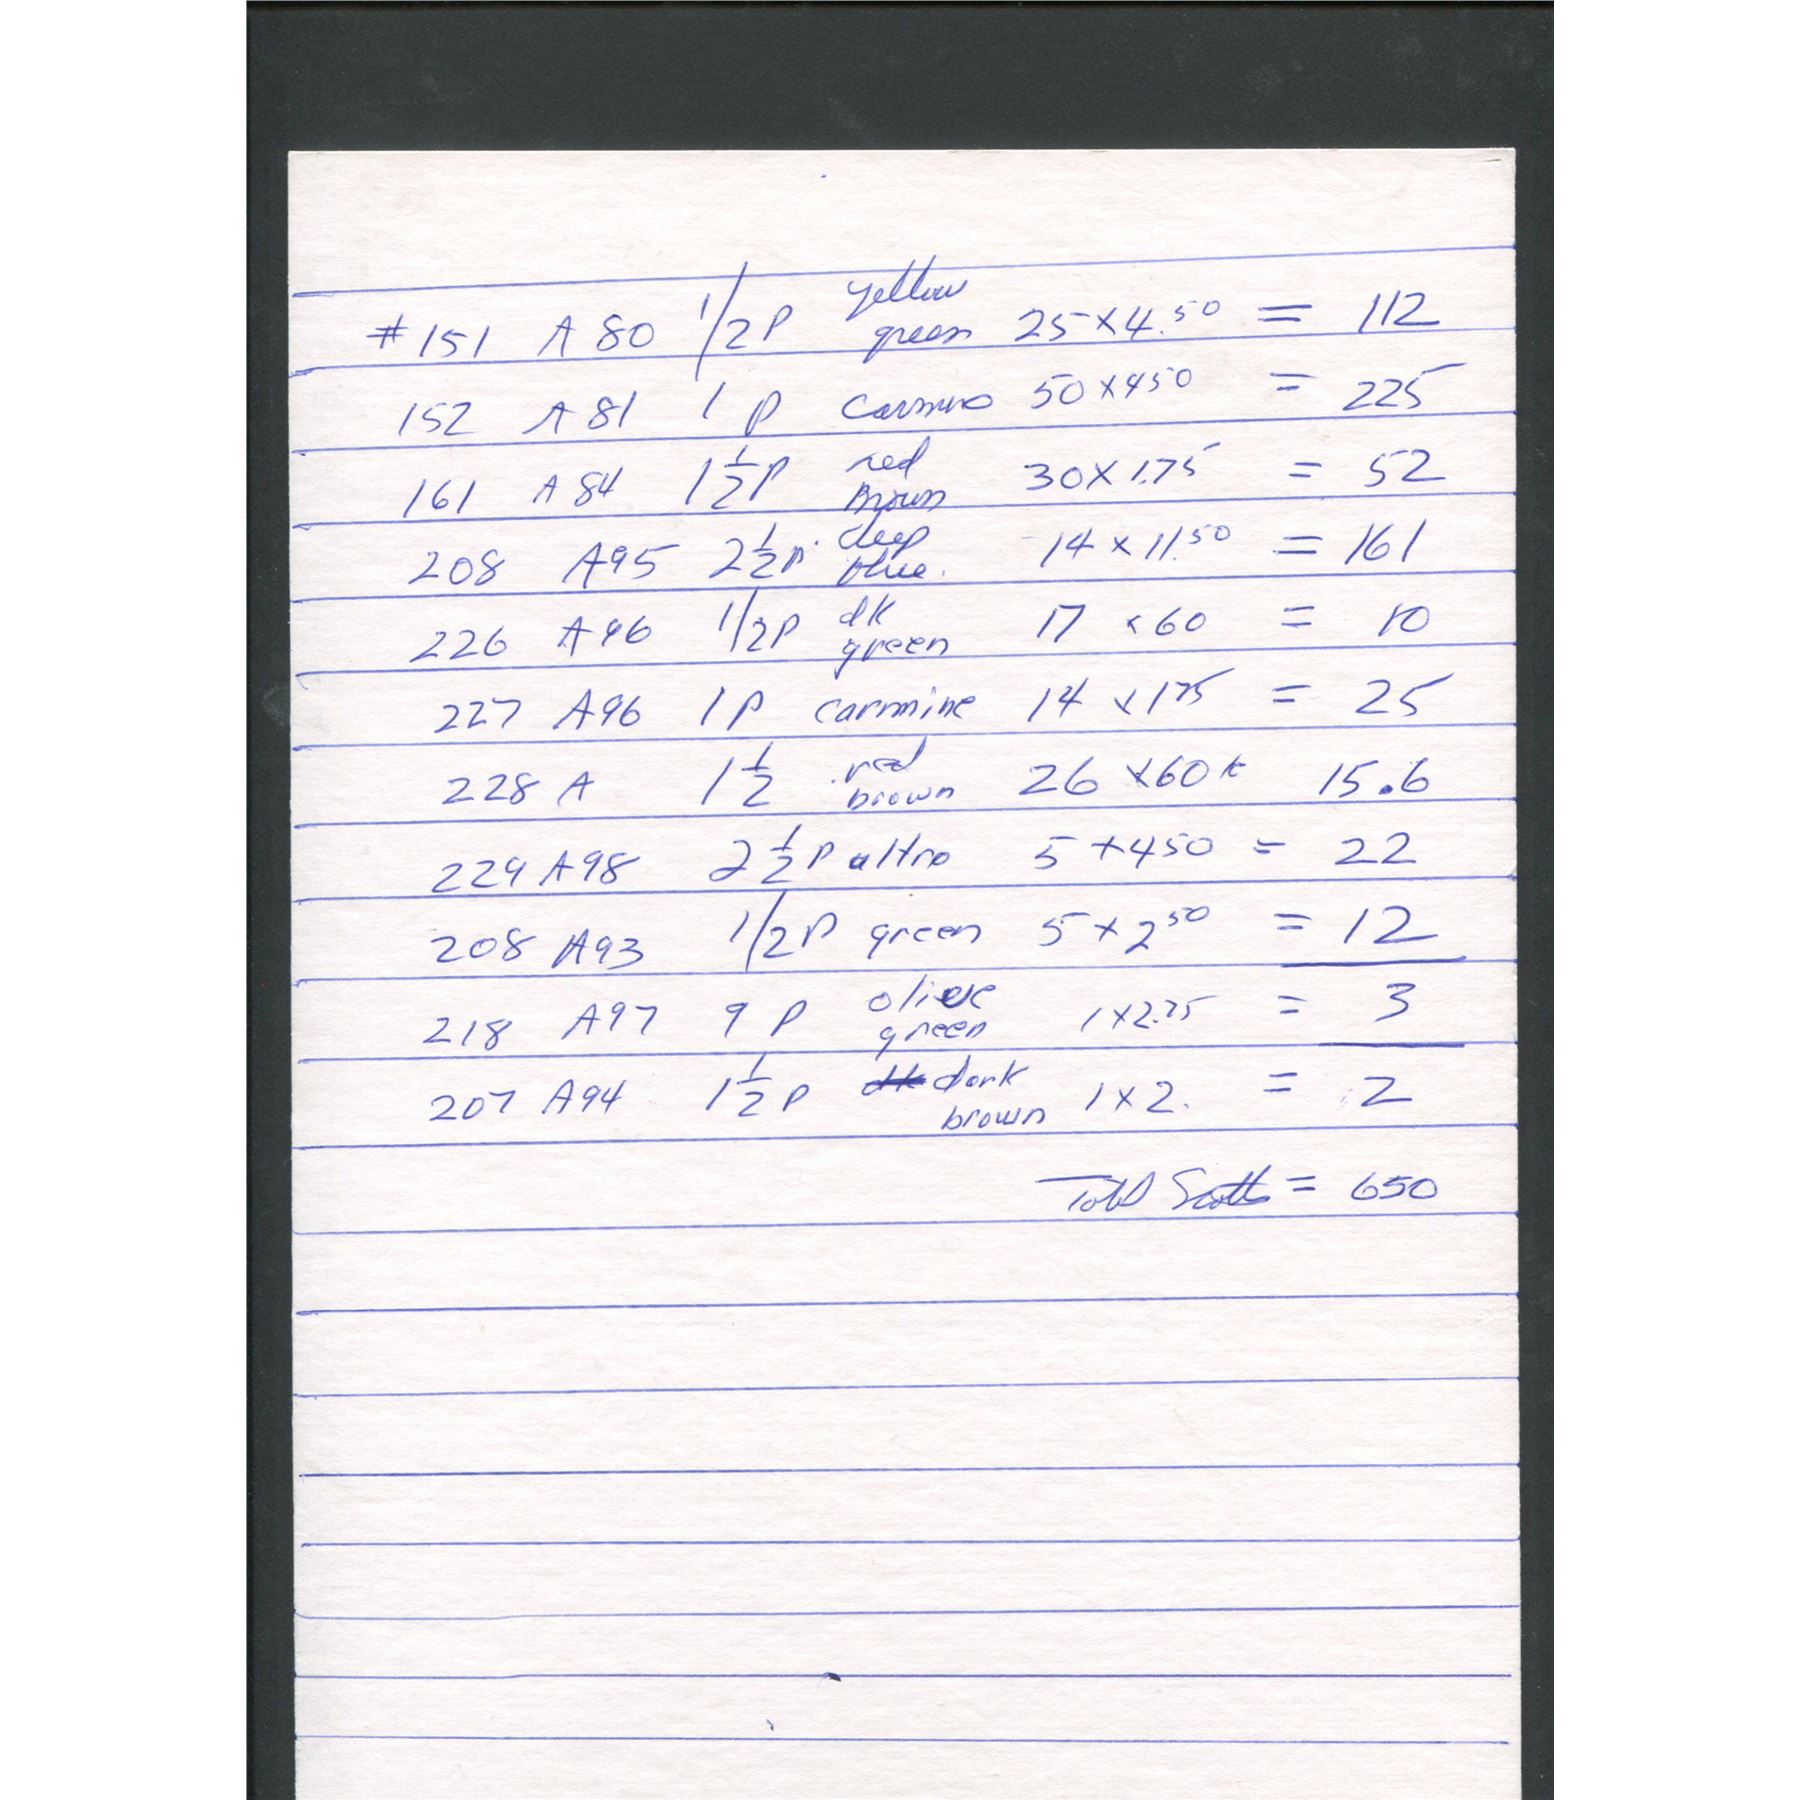 #151 A 80 1/2 P yellow green 25 x 4.50 = 112
152 A 81 1 P carmine 50 x 450 = 225
161 A 84 1 1/2 P red brown 30 x 1.75 = 52
208 A95 2 1/2 P deep blue. 14 x 11.50 = 161
226 A96 1/2 P dk green 17 x 60 = 10
227 A96 1 P carmine 14 x 175 = 25
228 A 1 1/2 red brown 26 x 60 15.6
229 A98 2 1/2 P ultro 5 x 450 = 22
208 A93 1/2 P green 5 x 2 50 = 12
218 A97 9 P olive green 1 x 2.75 = 3
207 A94 1 1/2 P dark brown 1 x 2. = 2
Total Scotts = 650